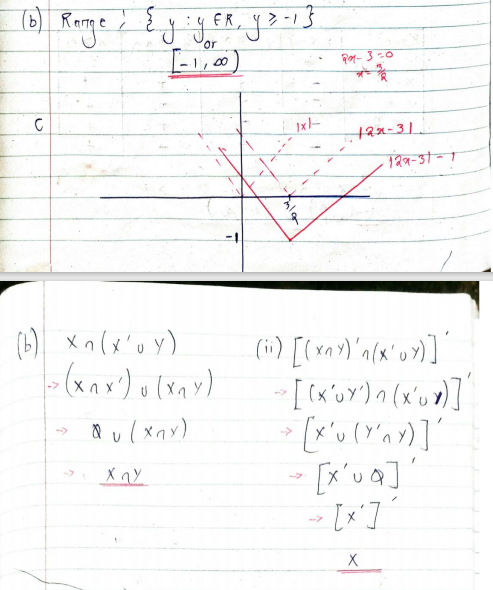 (b) Range : { y : y ∈ R, y ≥ -1 }
or
[-1, ∞)
2x - 3 = 0
x = 3/2
C
|x|
|2x-3|
|2x-3| - 1
3/2
-1
(b) X ∩ (X' ∪ Y)
→ (X ∩ X') ∪ (X ∩ Y)
→ Ø ∪ (X ∩ Y)
→ X ∩ Y
(ii) [(X ∩ Y)' ∩ (X' ∪ Y)]'
→ [(X' ∪ Y') ∩ (X' ∪ Y)]'
→ [X' ∪ (Y' ∩ Y)]'
→ [X' ∪ Ø]'
→ [X']'
X